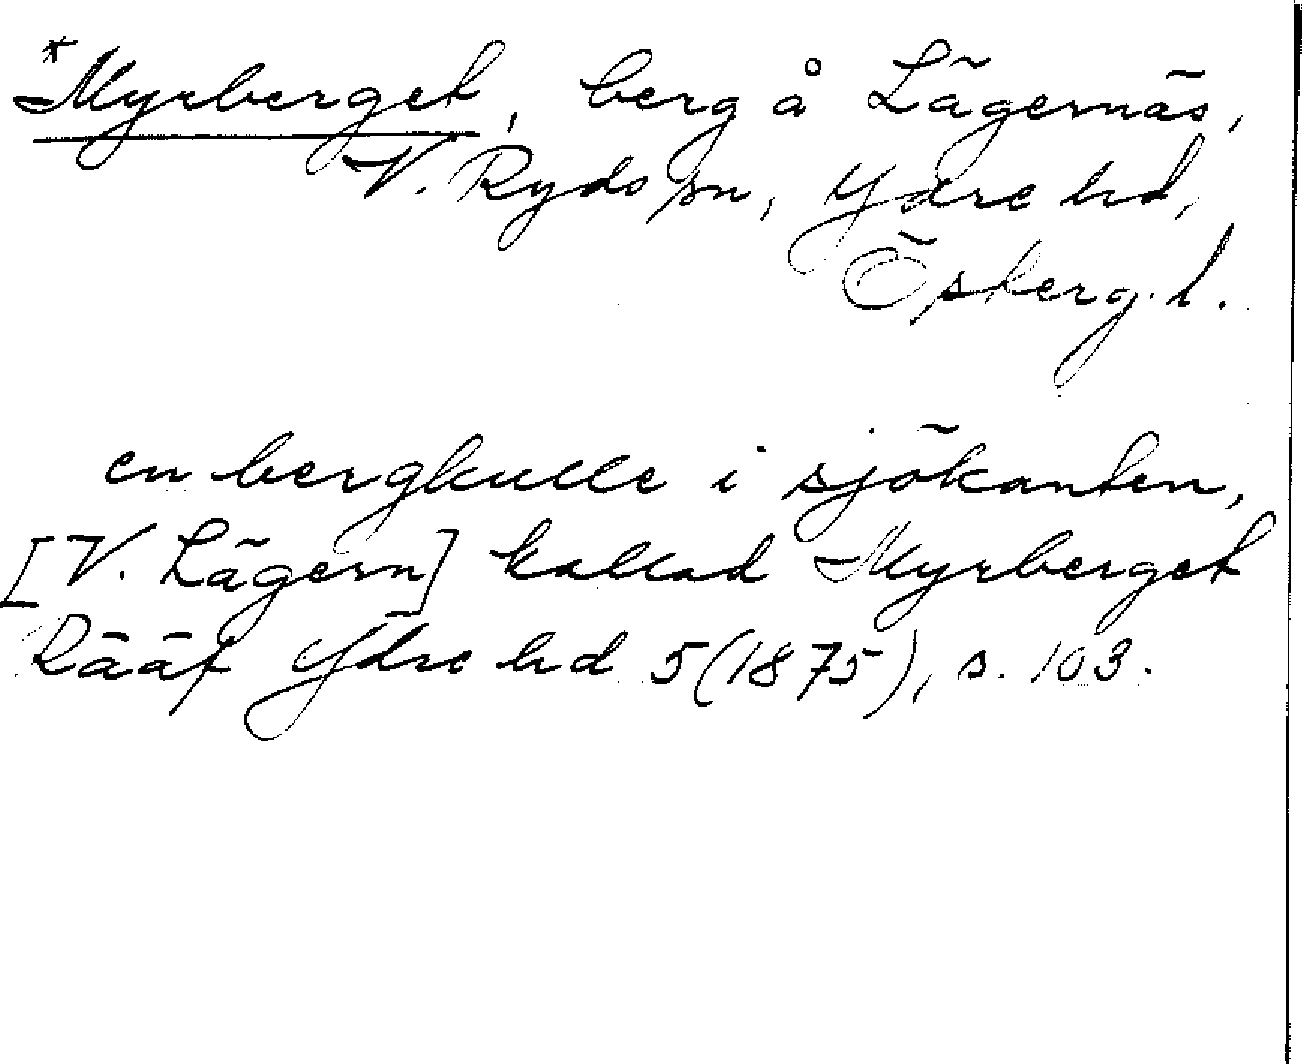 *Myrberget, berg å Lägernäs,
V. Ryds sn, Ydre hd,
Österg. l.
en bergkulle i sjökanten,
[V. Lägern] kallad Myrberget
Rääf Ydre hd 5(1875), s. 103.